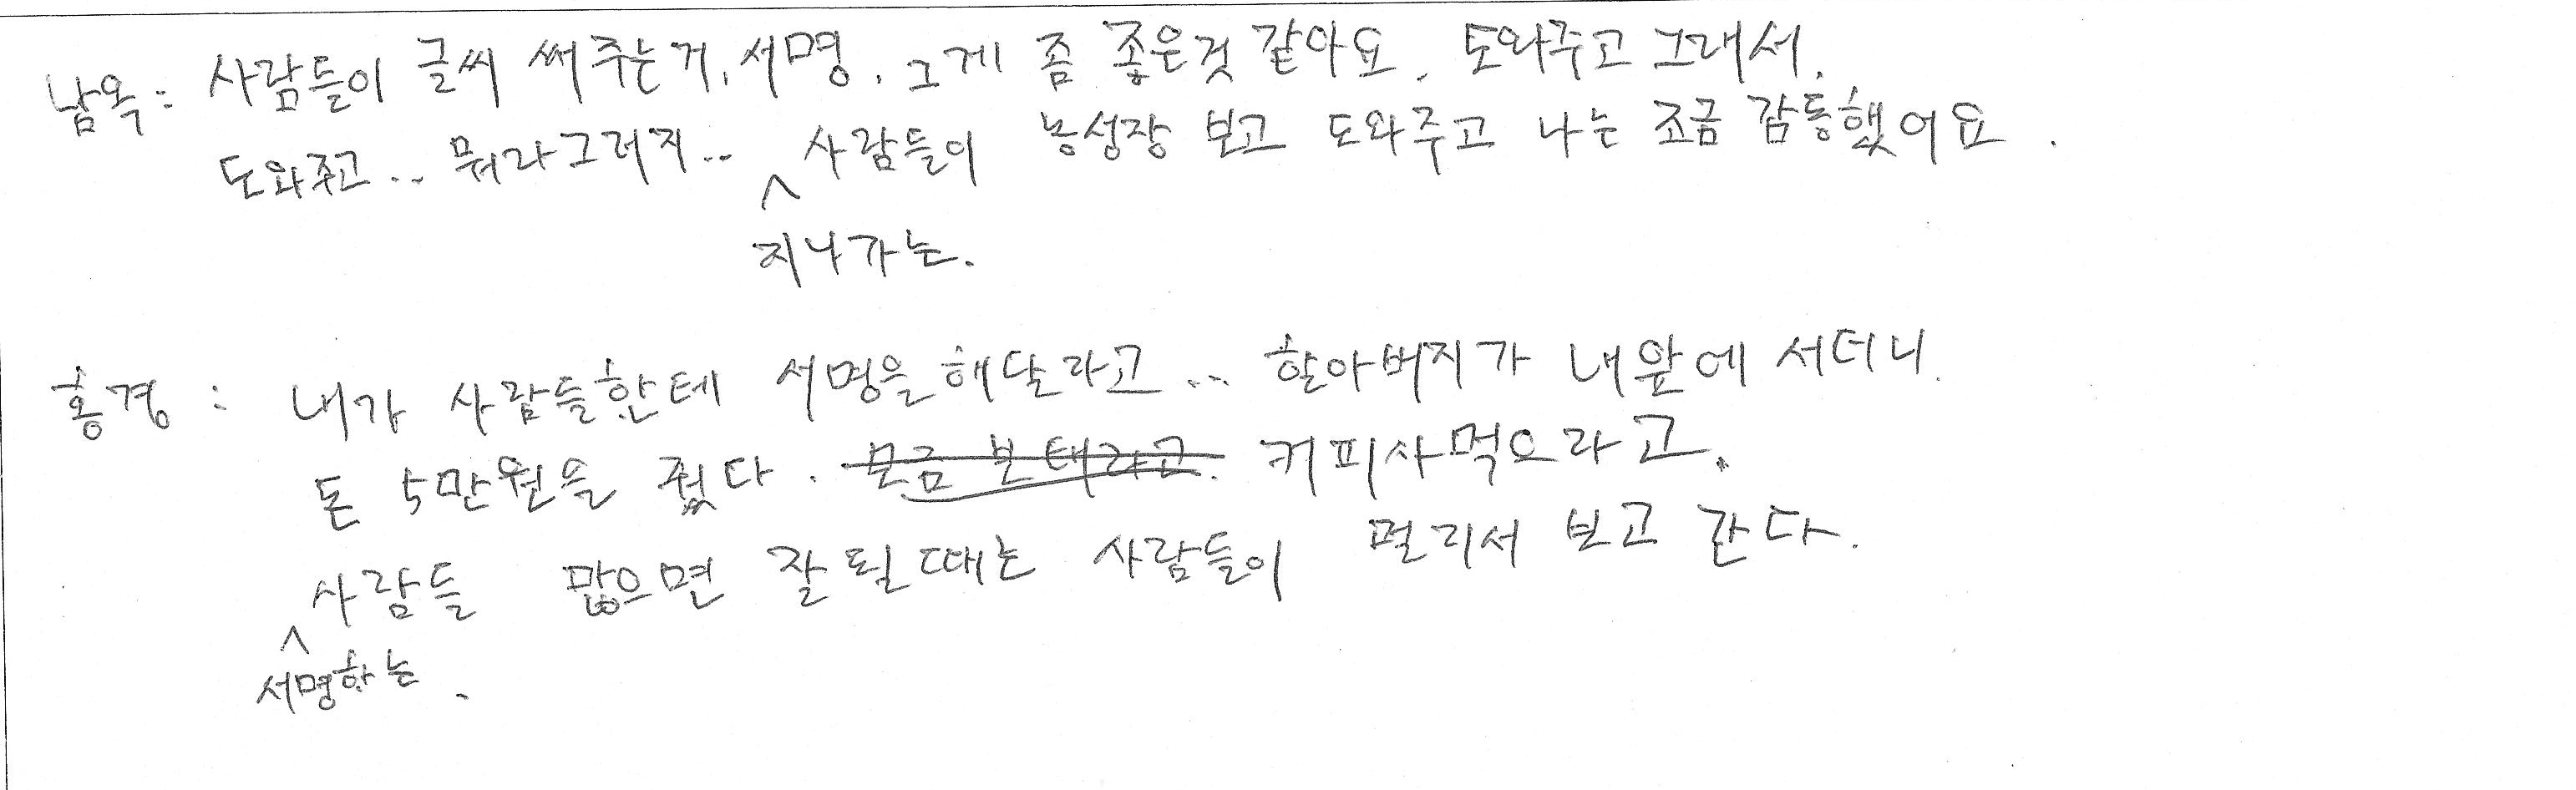 남옥: 사람들이 글씨 써주는거, 서명, 그게 좀 좋은것 같아요. 도와주고 그래서.
도와주고.. 뭐라그러지.. ^ 사람들이 농성장 보고 도와주고 나는 조금 감동했어요.
지나가는.
홍경: 내가 사람들한테 서명을 해달라고... 할아버지가 내앞에 서더니.
돈 5만원을 줬다. 모금 보태라고. 커피사먹으라고.
^ 사람들 많으면 잘 될때는 사람들이 멀리서 보고 간다.
서명하는.